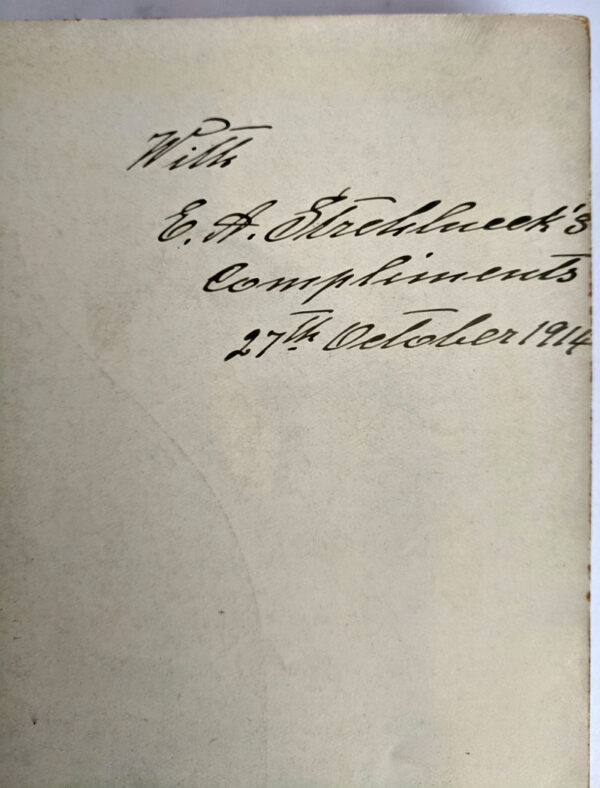 With
E. A. Strehlneek's
Compliments
27th October 1914